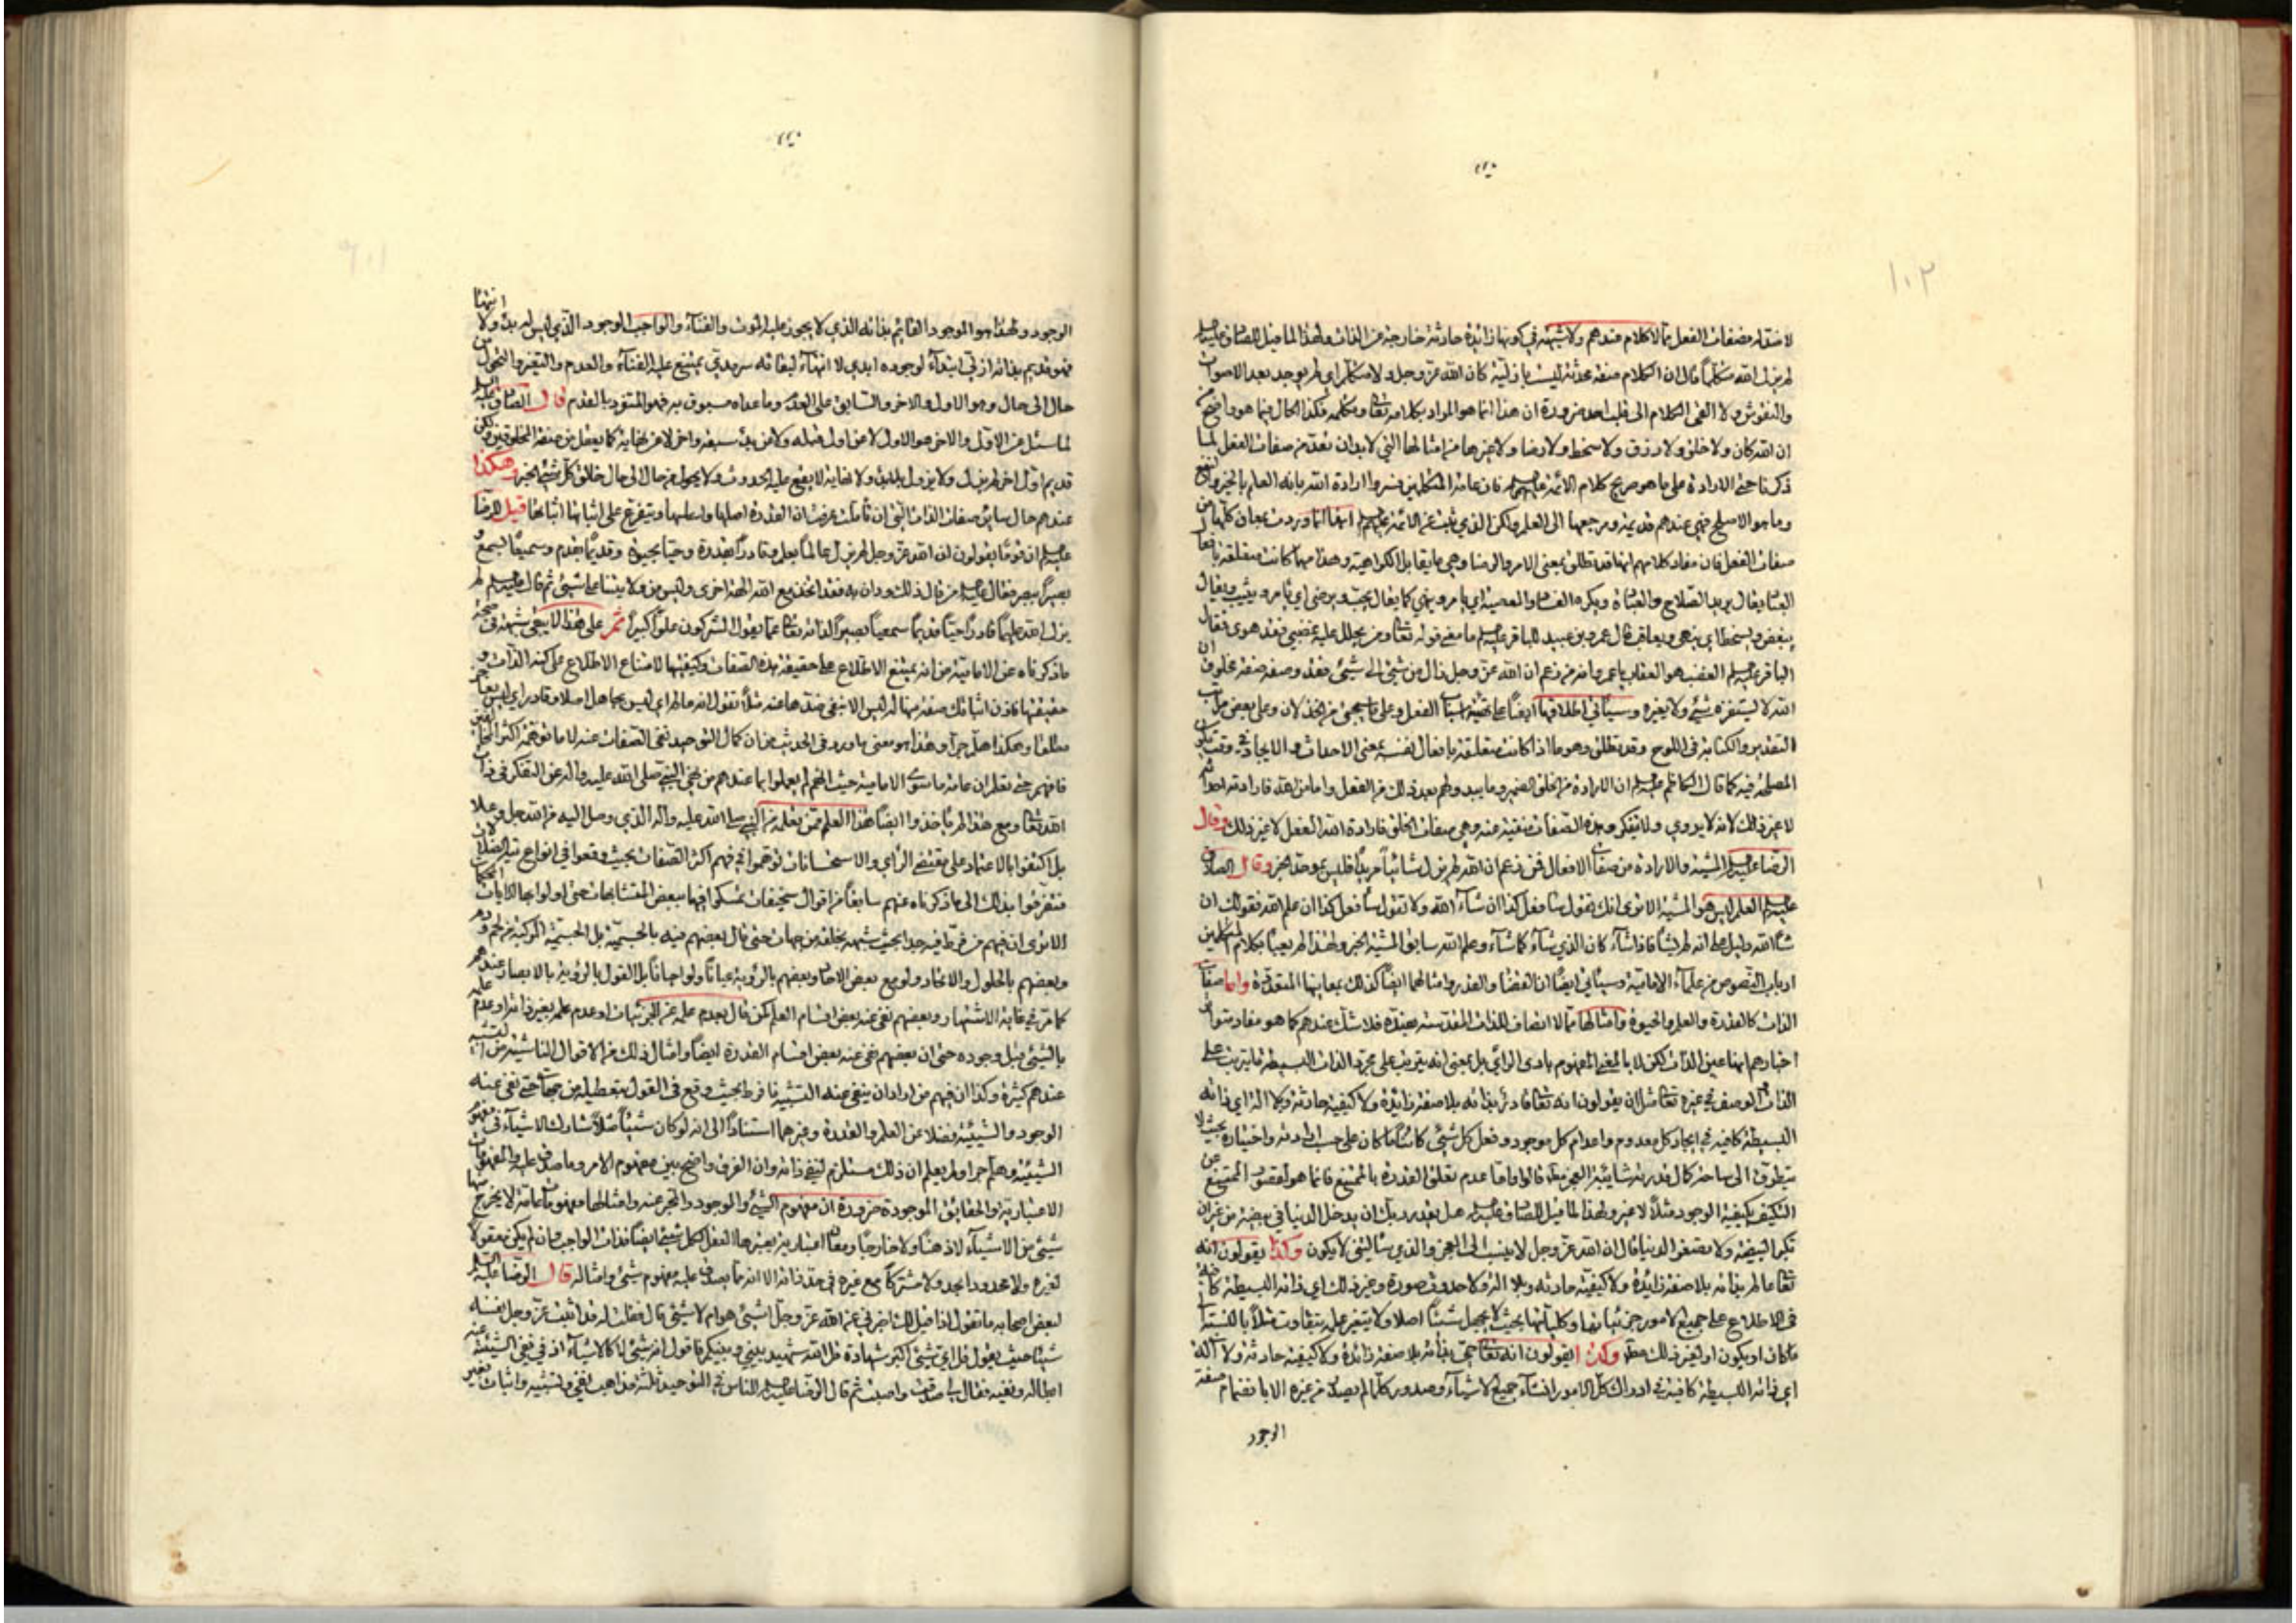 ١٠٢
لا ضد له فصفات الفعل مما لا كلام عندهم ولا شبهة في كونها زائدة حادثة خارجة عن الذات ولهذا لما قيل للصادق عليه السلام
لم يزل الله متكلما قال ان الكلام صفة محدثة ليست بازلية كان الله عز وجل ولا متكلم اي لم يوجد بعد الاصوات
والنقوش ولا القى الكلام الى قلب احد ضرورة ان هذا انما هو المراد بكلامه تعالى وتكلمه فكذا الحال فيما هو واضح من
ان الله كان ولا خلق ولا رزق ولا سخط ولا رضا ولا غيرها من امثالها التي لابد ان تعد من صفات الفعل لما
ذكرنا حتى الارادة على ما هو صريح كلام الائمة عليهم السلام فان عامة المتكلمين فسروا ارادة الله بانه العلم بالخير والنفع
وما هو الاصلح فهي عندهم قديمة ومرجعها الى العلم ولكن الذي ثبت عن الائمة عليهم السلام ايضا انها وردت بمعان كلها من
صفات الفعل فان مفاد كلامهم انها قد تطلق بمعنى الامر والرضا وهي ما يقابل الكراهية وهذا مهما كانت متعلقة بافعال
العباد يقال يريد الصلاح والعبادة ويكره الفساد والمعصية اي يامر وينهي كما يقال يحب ويرضى اي يامر ويثيب ويقال
يبغض ويسخط اي ينهى ويعاقب قال عمرو بن عبيد للباقر عليه السلام ما معنى قوله تعالى ومن يحلل عليه غضبي فقد هوى فقال
الباقر عليه السلام الغضب هو العقاب يا عمرو انه من زعم ان الله عز وجل زال من شيء الى شيء فقد وصفه صفة مخلوق ان
الله لا يستفزه شيء ولا يغيره وسياتي اطلاقها ايضا على تهيئة اسباب الفعل وعلى ما سيجيء من الخذلان وعلى بعض مراتب
التقدير والكتابة في اللوح وقد تطلق وهو ما اذا كانت متعلقة بافعال نفسه بمعنى الاحداث والايجاد في وقت تكون
المصلحة فيه كما قال الكاظم عليه السلام ان الارادة من الخلق الضمير وما يبدو لهم بعد ذلك من الفعل واما من الله فارادته احداثه
لا غير ذلك لانه لا يروي ولا يتفكر وهذه الصفات منفية عنه وهي صفات الخلق فارادة الله الفعل لا غير ذلك وقال
الرضا عليه السلام المشية والارادة من صفات الافعال فمن زعم ان الله لم يزل شائيا مريدا فليس بموحد الخبر وقال الصادق
عليه السلام العلم ليس هو المشية الا ترى انك تقول سافعل كذا ان شاء الله ولا تقول سافعل كذا ان علم الله فقولك ان
شاء الله دليل على انه لم يشأ فاذا شاء كان الذي شاء كما شاء وعلم الله سابق المشية الخبر ولهذا لم يعبأ بكلام المتكلمين
ارباب النصوص من علماء الامامية وسياتي ايضا ان القضاء والقدر وامثالهما ايضا كذلك بمعانيها المتعددة واما صفات
الذات كالقدرة والعلم والحيوة وامثالها مما لا اتصاف للذات المقدسة بضده فلا شك عندهم كما هو مفاد متواتر
اخبارهم انها عين الذات لكن لا بالمعنى المفهوم بادي الراي بل بمعنى انه يترتب على مجرد الذات البسيطة ما يترتب على
الذات والوصف في غيره تعالى مثل ان يقولون انه تعالى قادر بذاته بلا صفة زائدة ولا كيفية حادثة ولا الة اي ذاته
البسيطة كافية في ايجاد كل معدوم واعدام كل موجود وفعل كل شيء كائنا ما كان على حسب ارادته واختياره بحيث لا
يتطرق الى ساحة كمال قدرته شائبة العجز مطلقا قالوا واما عدم تعلق القدرة بالممتنع فانما هو لقصور الممتنع عن
التكيف بكيفية الوجود مثلا لا غير ولهذا لما قيل للصادق عليه السلام هل يقدر ربك ان يدخل الدنيا في بيضة من غير ان
تكبر البيضة ولا تصغر الدنيا قال ان الله عز وجل لا ينسب الى العجز والذي سالتني لا يكون وكذا يقولون انه
تعالى عالم بذاته بلا صفة زائدة ولا كيفية حادثة وبلا الة ولا حدوث صورة وغير ذلك اي ذاته البسيطة كافية
في الاطلاع على جميع الامور جزئياتها وكلياتها بحيث لا يجهل شيئا اصلا ولا يتغير علمه بتفاوت مثلا بالنسبة الى
ما كان او يكون او لغير ذلك مطلقا وكذا يقولون انه تعالى حي بذاته بلا صفة زائدة ولا كيفية حادثة ولا آلة
اي ذاته البسيطة كافية في ادراك كل الامور انشاء جميع الاشياء وصدور كلما لم يصدر من غيره الا بانضمام صفة
الوجود
الوجود ولهذا هو الموجود القائم بذاته الذي لا يجوز عليه الموت والفناء والواجب الوجود الذي ليس له بدء ولا انتهاء
فهو قديم بذاته ازلي لا ابتداء لوجوده ابدي لا انتهاء لبقائه سرمدي يمتنع عليه الفناء والعدم والتغير والتحول من
حال الى حال وهو الاول والاخر والسابق على العدم وما عداه مسبوق به فهو المتفرد بالقدم قال الصادق عليه السلام
لما سئل عن الاول والاخر هو الاول لا عن اول قبله ولا عن بدء سبقه واخر لا عن نهاية كما يعقل من صفة المخلوقين ولكن
قديم اول اخر لم يزل ولا يزول بلا بدء ولا نهاية لا يقع عليه الحدوث ولا يحول من حال الى حال خالق كل شيء الخبر وهكذا
عندهم حال سائر صفات الذات التي ان تاملت عرفت ان القدرة اصلها واعلمها ويتفرع على اثباتها اثباتها قيل للرضا
عليه السلام ان قوما يقولون ان الله عز وجل لم يزل عالما بعلم وقادرا بقدرة وحيا بحيوة وقديما بقدم وسميعا بسمع و
بصيرا ببصر فقال عليه السلام من قال ذلك ودان به فقد اتخذ مع الله الهة اخرى وليس من ولايتنا على شيء ثم قال عليه السلام لم
يزل الله عليما قادرا حيا قديما سميعا بصيرا لذاته تعالى عما يقول المشركون علوا كبيرا ثم على هذا لا يبقى شبهة في صحة
ما ذكرناه عن الامامية من انه يمتنع الاطلاع على حقيقة هذه الصفات وكيفيتها لامتناع الاطلاع على كنه الذات و
حقيقتها فاذن اثباتك صفة منها له ليس الا نفي ضدها عنه مثلا تقول انه عالم اي ليس بجاهل اصلا وقادر اي ليس بعاجز
مطلقا وهكذا هلم جرا وهذا هو معنى ما ورد في الحديث من ان كمال التوحيد نفي الصفات عنه لا ما توهمه اكثر المخالفين
فافهم حتى تعلم ان عامة ما سوى الامامية حيث انهم لم يعملوا بما عندهم من نهي النبي صلى الله عليه واله عن التفكر في ذات
الله تعالى ومع هذا لم ياخذوا ايضا هذا العلم ممن تعلمه من النبي صلى الله عليه واله الذي وصل اليه من الله جل وعلا
بل اكتفوا بالاعتماد على مقتضى الراي والاستحسانات توهموا في فهم اكثر الصفات بحيث وقعوا في انواع تيه الضلالات
فتفرقوا بذلك الى ما ذكرناه عنهم سابقا من اقوال سخيفات تمسكوا فيها ببعض المتشابهات حتى اولوا بها الايات المحكمات
الا ترى ان فيهم من فرط فيه جدا بحيث شبهه بخلقه من جهات حتى قال بعضهم فيه بالجسمية بل الجسمية المركبة من لحم ودم
وبعضهم بالحلول والاتحاد ولو مع بعض الاحاد وبعضهم بالرؤية عيانا ولو احيانا بل القول بالرؤية بالابصار عندهم
كما مر في غاية الاشتهار وبعضهم نفى عنه بعض اقسام العلم كمن قال بعدم علمه عن الجزئيات او عدم علمه بغير ذاته او عدم علمه
بالشيء قبل وجوده حتى ان بعضهم نفى عنه بعض اقسام القدرة ايضا وامثال ذلك من الاقوال الناشئة من التشبيه
عندهم كثيرة وكذا ان فيهم من اراد ان ينفي عنه التشبيه فافرط بحيث وقع في القول بتعطيله من جهات حتى نفى عنه
الوجود والشيئية فضلا عن العلم والقدرة وغيرهما استنادا الى انه لو كان شيئا مثلا شارك الاشياء في مفهوم
الشيئية وهلم جرا ولم يعلم ان ذلك مستلزم لنفي ذاته وان الفرق واضح بين مفهوم الامر وما صدق عليه والمفهومات
الاعتبارية والحقائق الموجودة ضرورة ان مفهوم الشيء والموجود والمخبر عنه وامثالها مفهومات عامة لا يخرج منها
شيء من الاشياء لا ذهنا ولا خارجا ومعان اعتبارية يعتبرها العقل لكل شيء ايضا فذات الواجب وان لم يكن معقولا
لغيره ولا محدودا بحد ولا مشتركا مع غيره في حد ذاته الا انه مما يصدق عليه مفهوم شيء وامثاله قال الرضا عليه السلام
لبعض اصحابه ما تقول اذا قيل لك اخبرني عن الله عز وجل اشيء هو ام لا شيء قال فقلت له قد اثبت عز وجل نفسه
شيئا حيث يقول قل اي شيء اكبر شهادة قل الله شهيد بيني وبينكم فاقول انه شيء لا كالاشياء اذ في نفي الشيئية عنه
ابطاله ونفيه فقال لي صدقت واصبت ثم قال الرضا عليه السلام للناس في التوحيد ثلثة مذاهب نفي وتشبيه واثبات بغير